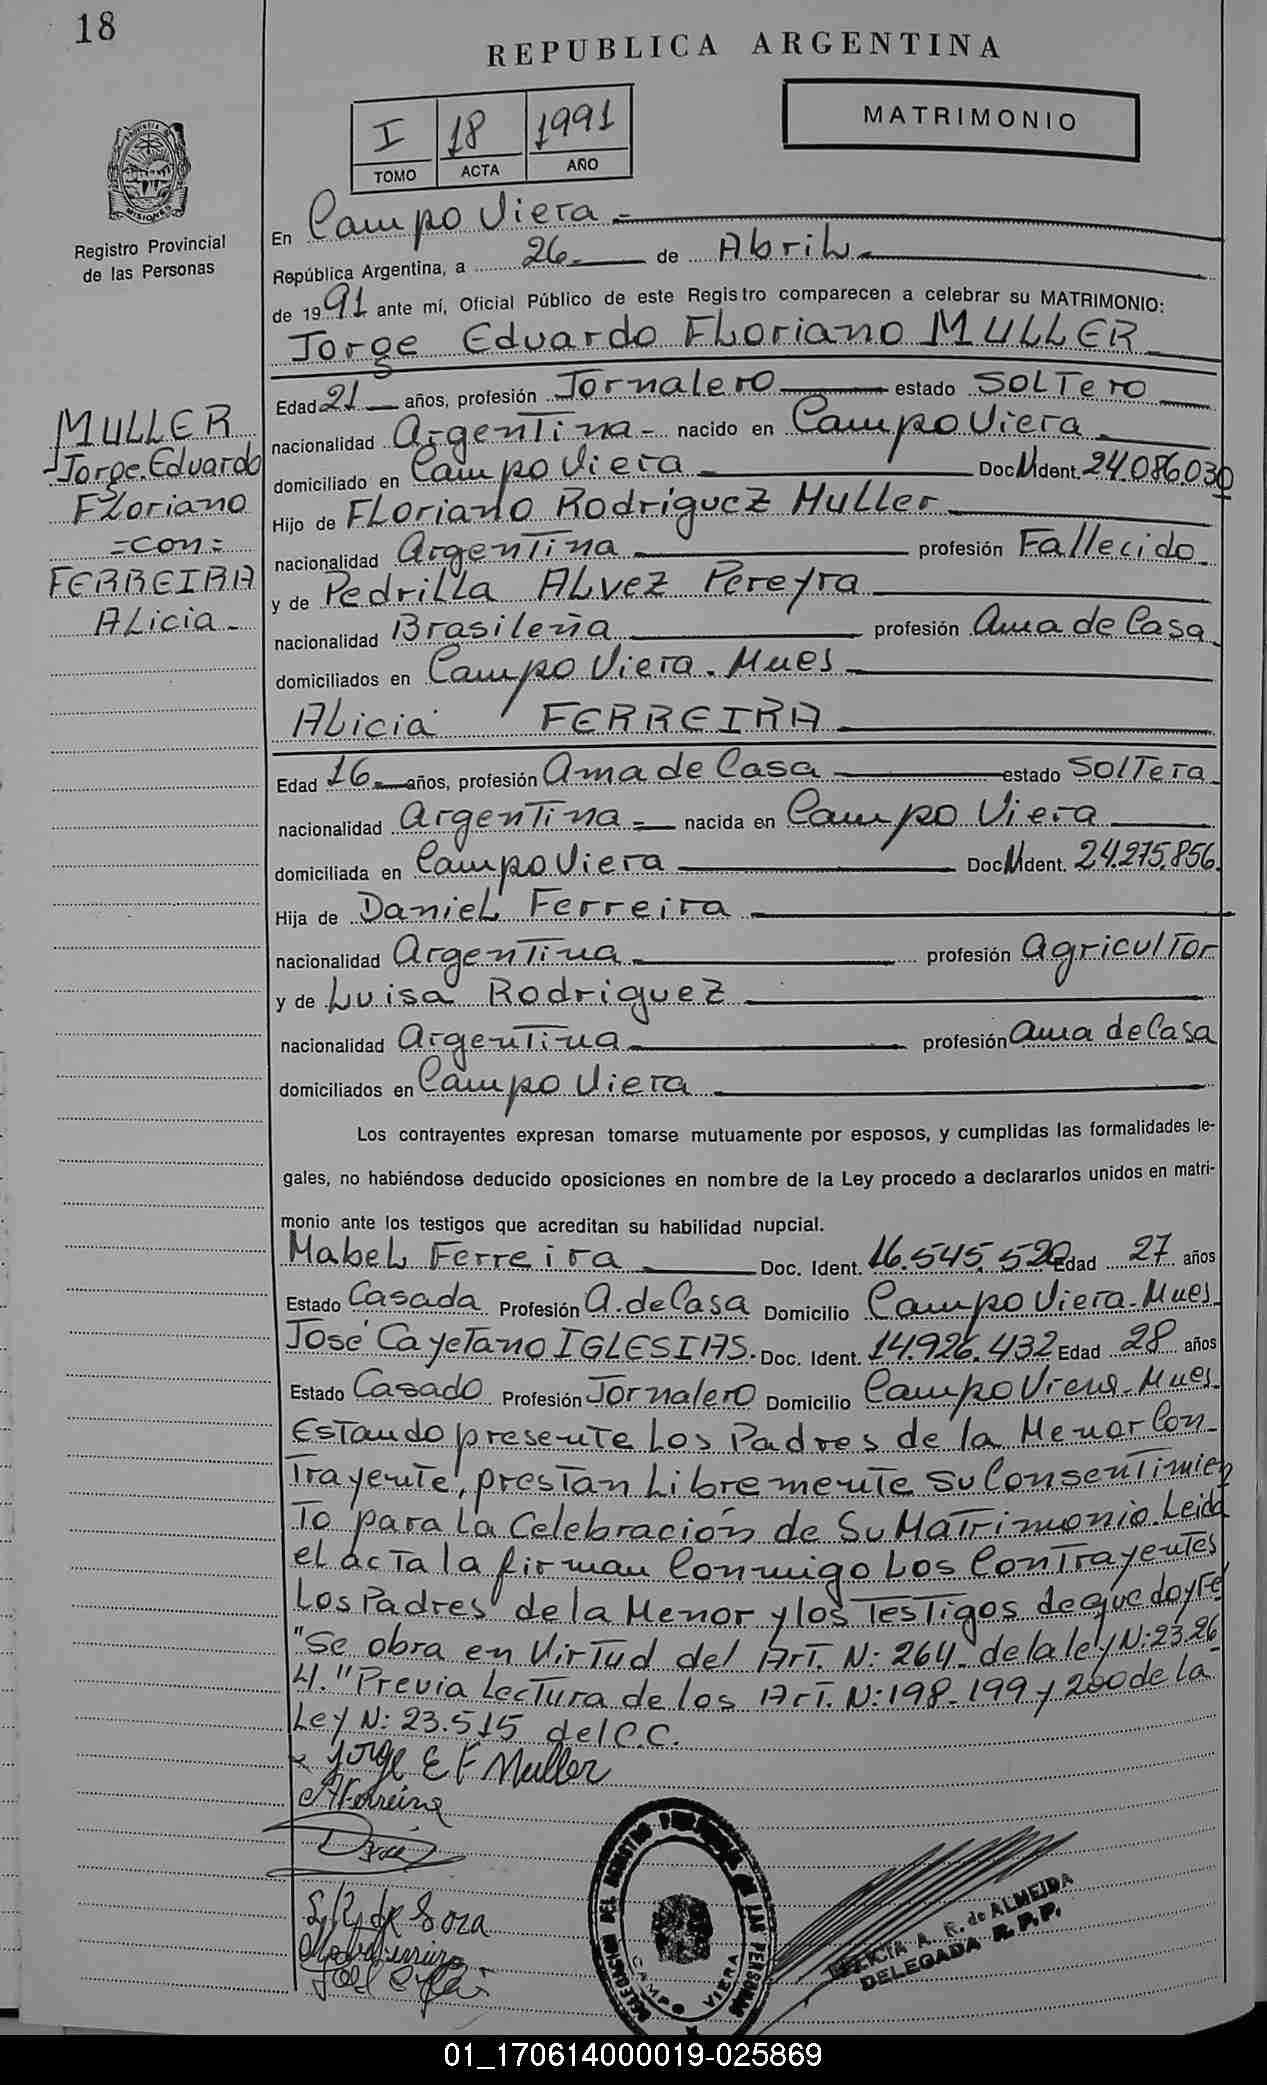 18
REPUBLICA ARGENTINA
I 18 1991
TOMO ACTA AÑO
MATRIMONIO
PROVINCIA
MISIONES
Registro Provincial
de las Personas
En Campo Viera
República Argentina, a 26 de Abril
de 1991 ante mí, Oficial Público de este Registro comparecen a celebrar su MATRIMONIO:
Jorge Eduardo Floriano MULLER
Edad 21 años, profesión Jornalero estado Soltero
nacionalidad Argentina nacido en Campo Viera
domiciliado en Campo Viera Doc N Ident. 24.086.030
Hijo de Floriano Rodriguez Muller
nacionalidad Argentina profesión Fallecido
y de Pedrilla Alvez Pereyra
nacionalidad Brasileña profesión Ama de Casa
domiciliados en Campo Viera. Mnes
Alicia FERREIRA
Edad 16 años, profesión Ama de Casa estado Soltera
nacionalidad Argentina nacida en Campo Viera
domiciliada en Campo Viera Doc N Ident. 24.275.856
Hija de Daniel Ferreira
nacionalidad Argentina profesión Agricultor
y de Luisa Rodriguez
nacionalidad Argentina profesión Ama de Casa
domiciliados en Campo Viera
MULLER
Jorge Eduardo
Floriano
=con=
FERREIRA
Alicia
Los contrayentes expresan tomarse mutuamente por esposos, y cumplidas las formalidades le-
gales, no habiéndose deducido oposiciones en nombre de la Ley procedo a declararlos unidos en matri-
monio ante los testigos que acreditan su habilidad nupcial.
Mabel Ferreira Doc. Ident. 16.545.520 Edad 27 años
Estado Casada Profesión A. de Casa Domicilio Campo Viera. Mnes
José Cayetano IGLESIAS. Doc. Ident. 14.926.432 Edad 28 años
Estado Casado Profesión Jornalero Domicilio Campo Viera. Mnes
Estando presente los Padres de la Menor Con-
trayente, prestan libremente su Consentimien
to para la Celebración de Su Matrimonio. Leida
el acta la firman Conmigo los Contrayentes
Los Padres de la Menor y los Testigos de que doy Fe
"Se obra en Virtud del Art. N: 264 de la ley N: 23.26
4." Previa Lectura de los Art. N: 198-199 y 200 de la
Ley N: 23.515 del C.C.
Jorge E F Muller
A Ferreira
CAMPO VIERA
FELICIA A. R. de ALMEIDA
DELEGADA R. P. P.
01_170614000019-025869